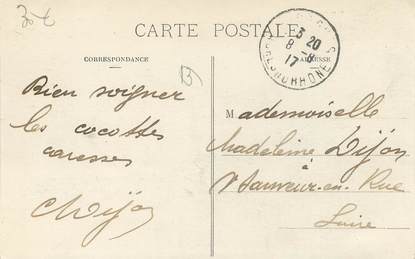 CARTE POSTALE
CORRESPONDANCE
ADRESSE
3 20
8 -8
17
Bien soigner
les cocottes
caresses
Dijon
Mademoiselle
Madeleine Dijon
à
St Sauveur-en-Rue
Loire